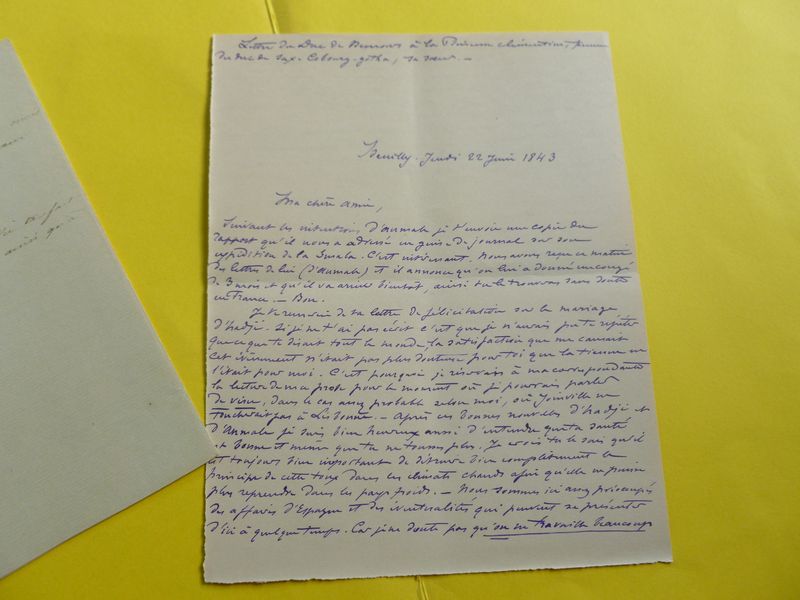 Lettre du Duc de Nemours à la Princesse Clémentine, femme
du duc de Saxe-Cobourg-gotha, sa sœur. —
Neuilly. Jeudi 22 Juin 1843
Ma chère amie,
Suivant les intentions d'Aumale je t'envoie une copie du
rapport qu'il nous a adressé en guise de journal sur son
expédition de la Smala. C'est intéressant. Nous avons reçu ce matin
des lettres de lui (d'Aumale) et il annonce qu'on lui a donné un congé
de 3 mois et qu'il va arriver bientôt, ainsi tu le trouveras sans doute
en France. — Bon.
Je te remercie de ta lettre de félicitation sur le mariage
d'hadji. Si je ne t'ai pas écrit c'est que je n'aurais pu te répéter
que ce que te disait tout le monde. La satisfaction que me causait
cet événement n'était pas plus douteuse pour toi que la tienne ne
l'était pour moi. C'est pourquoi je réservais à ma correspondante
la lecture de ma prose pour le moment où je pourrais parler
de visu, dans le cas assez probable selon moi, où Joinville ne
toucherait pas à Lisbonne. — Après ces bonnes nouvelles d'hadji et
d'Aumale je suis bien heureux aussi d'entendre que ta santé
est bonne et même que tu ne tousses plus. Je crois tu le sais qu'il
est toujours bien important de détruire bien complètement le
principe de cette toux dans les climats chauds afin qu'elle ne puisse
plus reprendre dans les pays froids. — Nous sommes ici assez préoccupés
des affaires d'Espagne et des éventualités qui peuvent se présenter
d'ici à quelque temps. Car je ne doute pas qu'on en travaille beaucoup